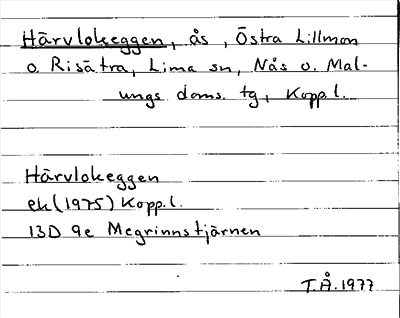 Härvlokeggen, ås, Östra Lillmon
o. Risätra, Lima sn, Nås o. Mal-
ungs doms. tg, Kopp.l.
Härvlokeggen
ek (1975) Kopp.l.
13D 9e Megrinnstjärnen
T.Å. 1977